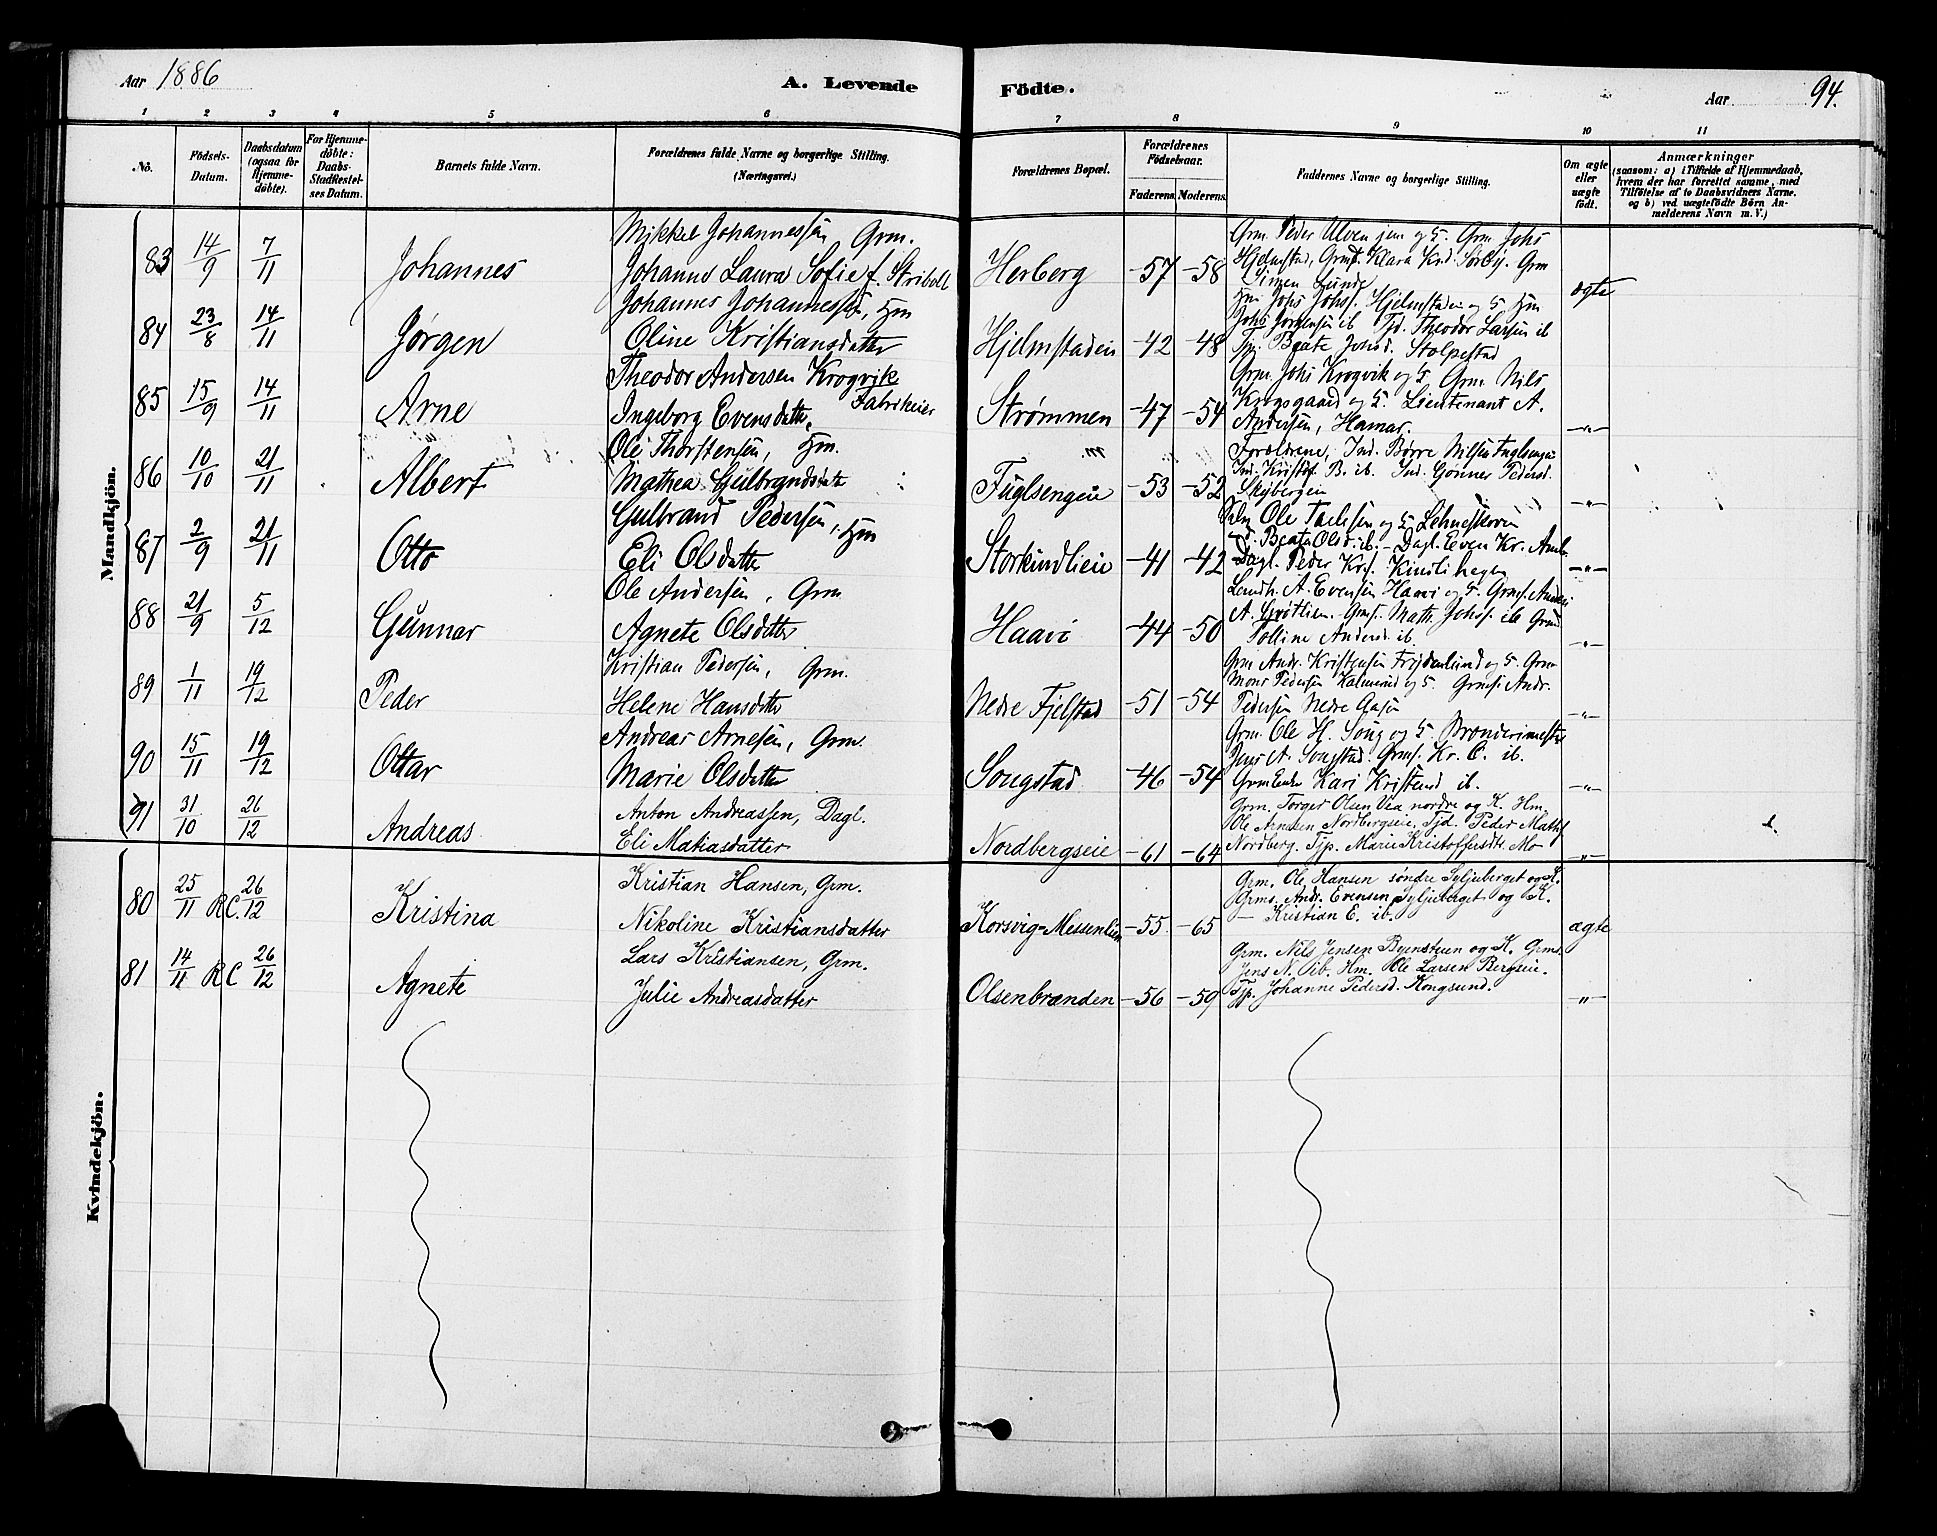 Aar 1886 A. Levende Födte. Aar 94.
1 2 3 4 5 6 7 8 9 10 11
No.
Födsels-Datum.
Daabsdatum (ogsaa for Hjemme-döbte).
For Hjemme-döbte: Daabs-Stadfæstel-ses Datum.
Barnets fulde Navn.
Forældrenes fulde Navne og borgerlige Stilling. (Næringsvei.)
Forældrenes Bopæl.
Forældrenes Födselsaar.
Faderens. Moderens.
Faddernes Navne og borgerlige Stilling.
Om ægte eller uægte födt.
Anmærkninger
(saasom: a) i Tilfælde af Hjemmedaab, hvem der har forrettet samme, med Tilföielse af to Daabsvidners Navne, og b) ved uægtefödte Börn An-melderens Navn m. V.)
Mandkjön.
83 14/9 7/11 Johannes
Mikkel Johannessen Grm.
Johanne Laura Sofie f. Stribolt
Herberg -57 -58
Grm. Peder Ulven jun og H. Grm Johs
Hjelmstad, Grmf. Klara Knd. Sørby. Grm
Simen Lunde
ægte
84 23/8 14/11 Jørgen
Johannes Johannessen, Hm
Oline Kristiansdatter
Hjelmstadeie -42 -48
Hm. Johs Johs. Hjelmstadeie og H Hm
Johs Jørgensen ib Tjd. Theodor Larsen ib
Tjp. Beate Johsd. Stolpestad
85 15/9 14/11 Arne
Theodor Andersen Krogvik
Fabrikeier
Ingeborg Evensdatter
Strømmen -47 -54
Grm. Johs Krogvik og H Grm Nils
Krogsgaard og H. Lieutenant A.
Andersen, Hamar.
-"-
86 10/10 21/11 Albert
Ole Thorstensen, Hm.
Mathea Gulbrandsdatter
Fuglsengeie -53 -52
Forældrene, Ind. Børre Nilsen Fuglsengeie
Ind. Kristof. B. ib. Ind. Gønner Pedersd.
Skybergeie
-"-
87 2/9 21/11 Otto
Gulbrand Pedersen, Hm
Eli Olsdatter
Storkundlieie -41 -42
Ole
Beata Olsd. ib. - Dagl. Even Kr.
Dagl. Peder Kr.
-"-
88 21/9 5/12 Gunnar
Ole Andersen, Grm
Agnete Olsdatter
Haavi -44 -50
Landh. A. Evensen Haavi og H. Grmf.
A. Grøtlien. Grmf. Math. Johs. ib Grmd
Polline Andersd. ib
-"-
89 1/11 19/12 Peder
Kristian Pedersen, Grm.
Helene Hansdatter
Nedre Fjelstad -51 -54
Grm Andr. Kristensen Frydenlund og H. Grm
Mons Pedersen og H. Grms. Andr.
Pedersen Nedre Aasen
-"-
90 15/11 19/12 Ottar
Andreas Arnesen, Grm.
Marie Olsdatter
Songstad -46 -54
Grm. Ole H. Song og H. Brænderimester
Jens A. Songstad. Grmf. Kr. O. ib.
Grmenke Kari Kristensd ib.
-"-
91 31/10 26/12 Andreas
Anton Andreassen, Dagl.
Eli Matiasdatter
Nordbergseie -61 -64
Grm. Torger Olsen Vea nordre og K. Hm.
Ole Arnesen Nordbergseie, Tjd. Peder Mathis
Nordberg. Tjp. Marie Kristoffersdtr. Mo
"
Kvindekjön.
80 25/11 RC. 26/12 Kristina
Kristian Hansen, Grm.
Nikoline Kristiansdatter
Korsvig-Messenlien -55 -65
Grm. Ole Hansen søndre Syljuberget og K.
Grms. Andr. Evensen Syljuberget og K.
— Kristian E. ib.
ægte
81 14/11 RC 26/12 Agnete
Lars Kristiansen, Grm.
Julie Andreasdatter
Olsenbranden -56 -59
Grm. Nils Jensen Byenstuen og K. Grms.
Jens N. ib. Hm. Ole Larsen Bergseie.
Tjp. Johanne Pedersd. Kongsund.
-"-